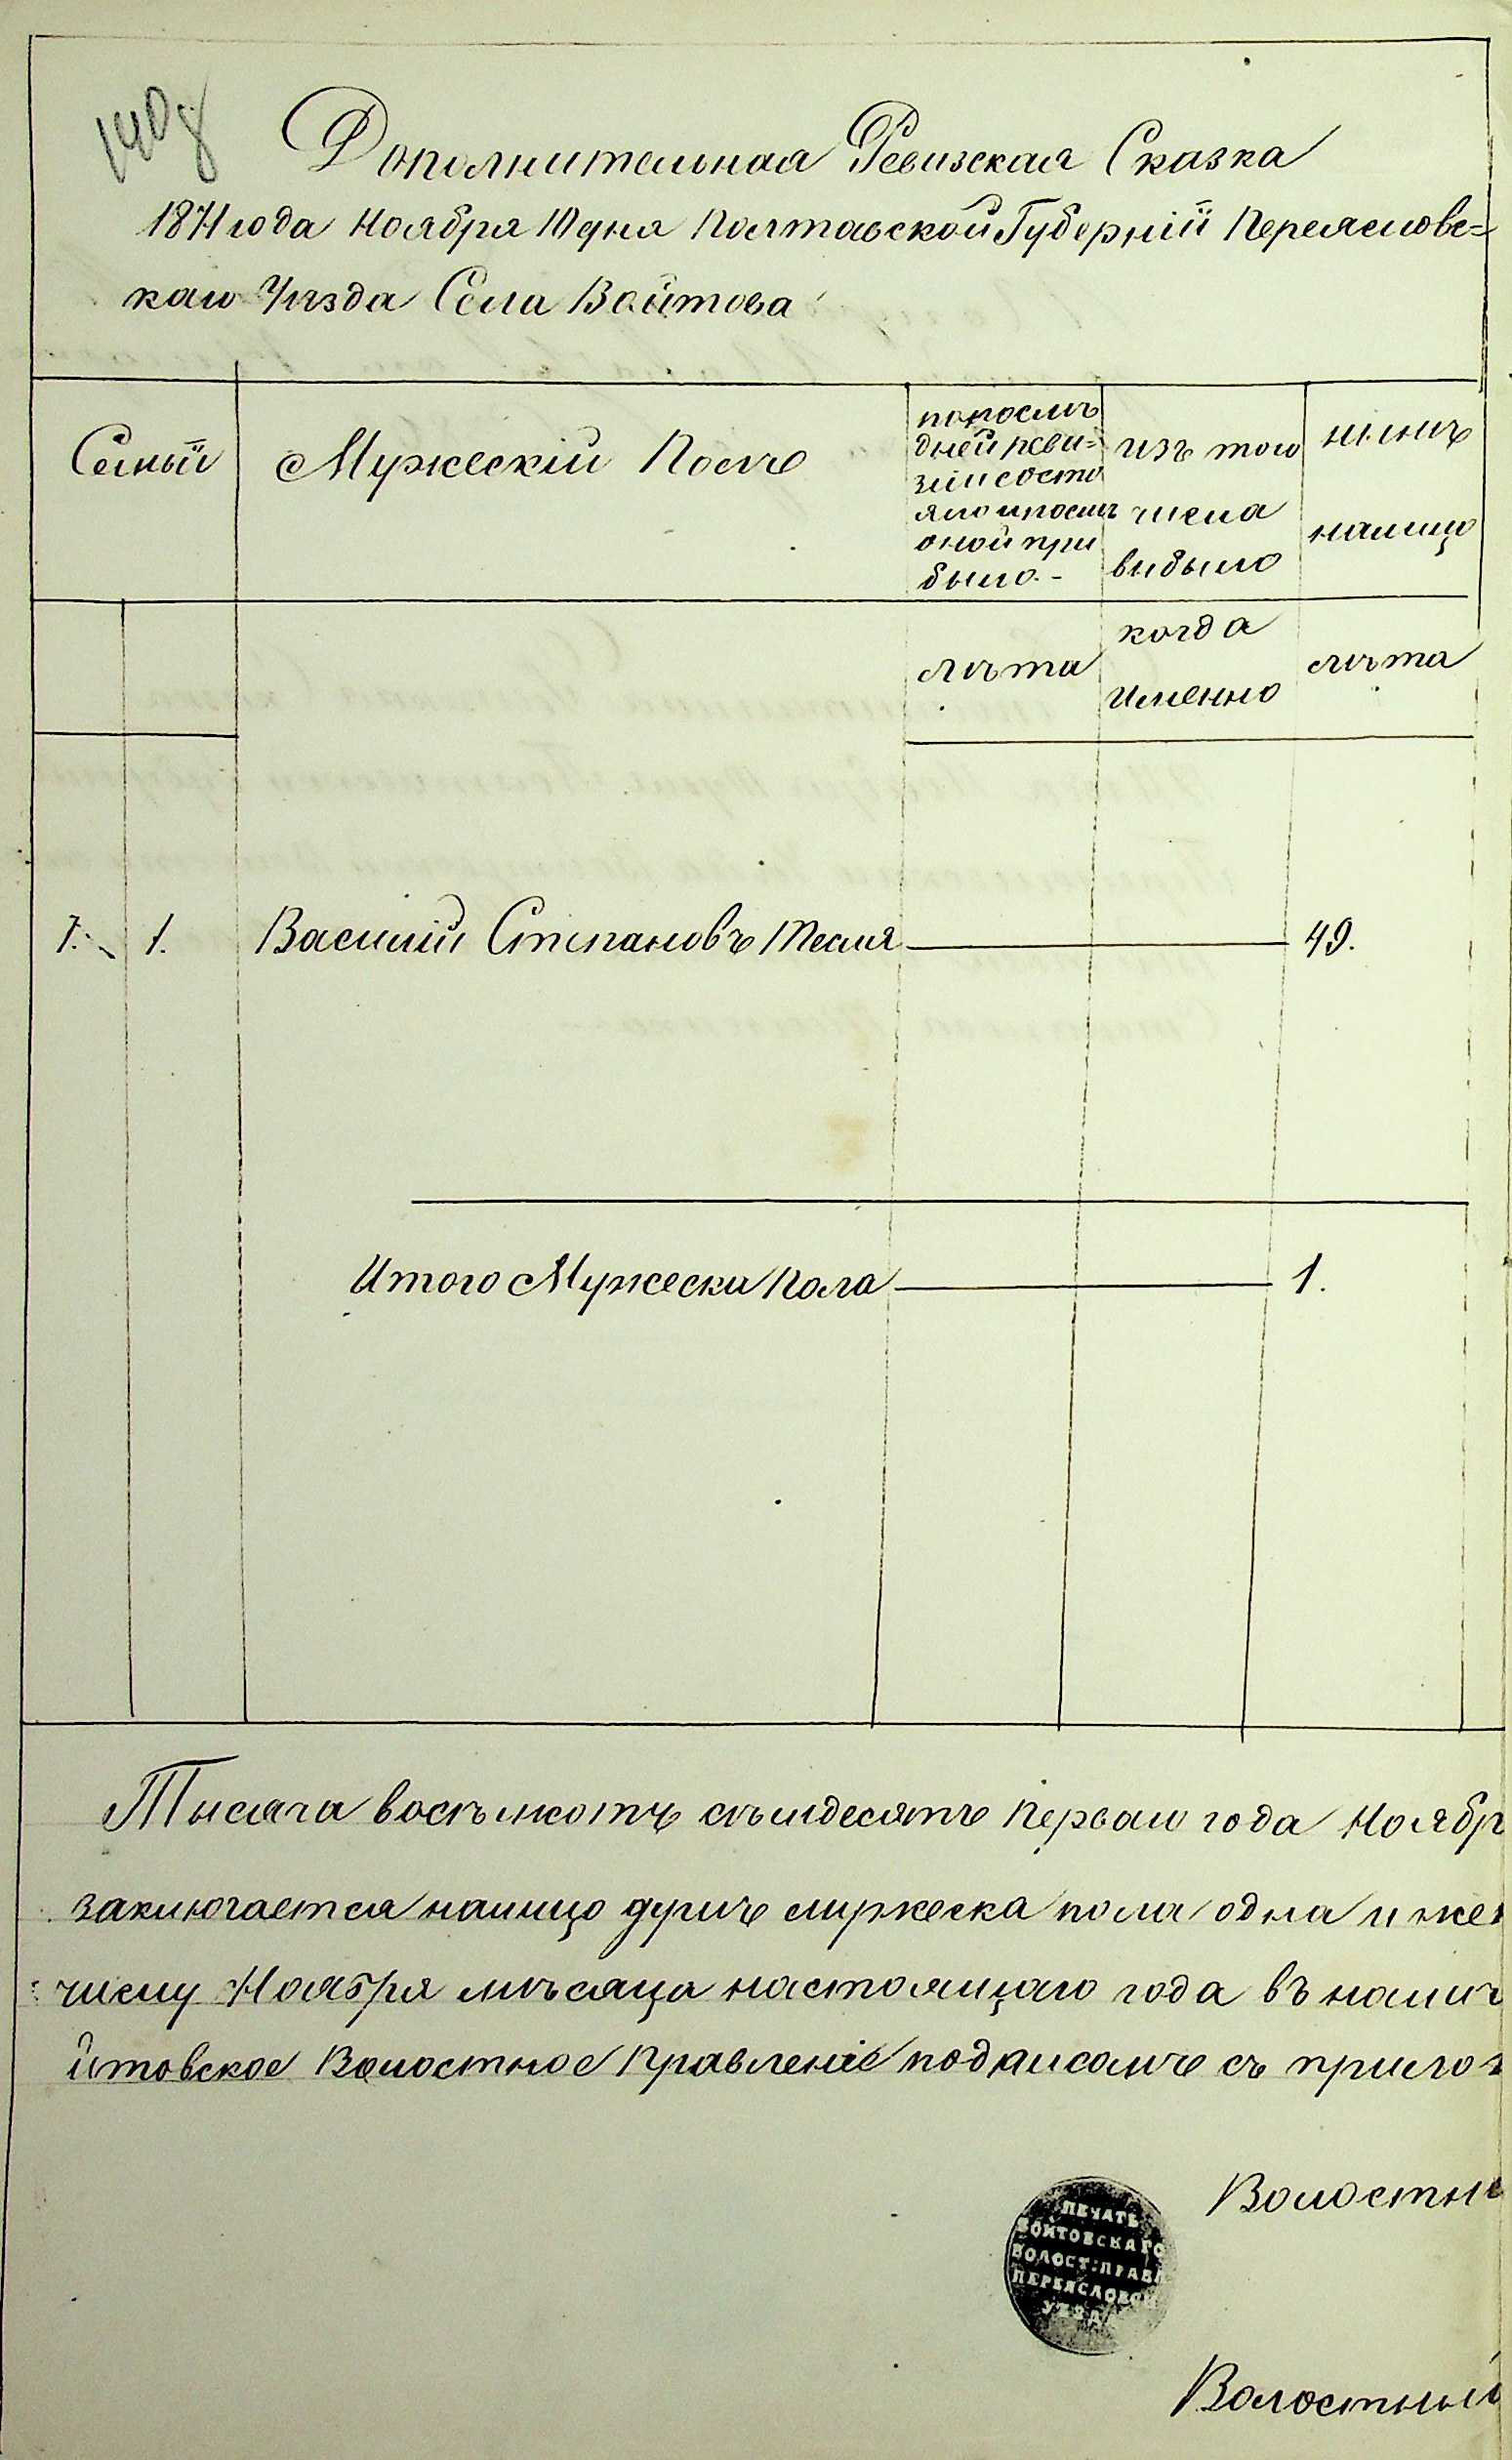 Дополнительная Ревизская Сказка
1871 года Ноября 10 дня Полтавской Губерніи Переяславс=
каго Уѣзда Села Войтова
Семьи
Мужескій Полъ
попослѣ
дней реви=
зіи состо
яло и послѣ
оной при
было.-
изъ того
числа
выбыло
нынѣ
налицо
лѣта
когда
именно
лѣта
1. 1. Василій Степановъ Тесля 49.
Итого Мужеска Пола 1.
Тысяча восѣмсотъ сѣмдесятъ Перваго года Ноябр
заключается налицо душъ мужеска пола одна и жен
числу Ноября мѣсяца настоящаго года въ налич
йтовское Волостное Правленіе подписомъ съ прилож
Волостны
ПЕЧАТЬ
ВОЙТОВСКАГО
ВОЛОСТ: ПРАВЛ
ПЕРЕЯСЛОВСК
УѢЗДА
Волостный